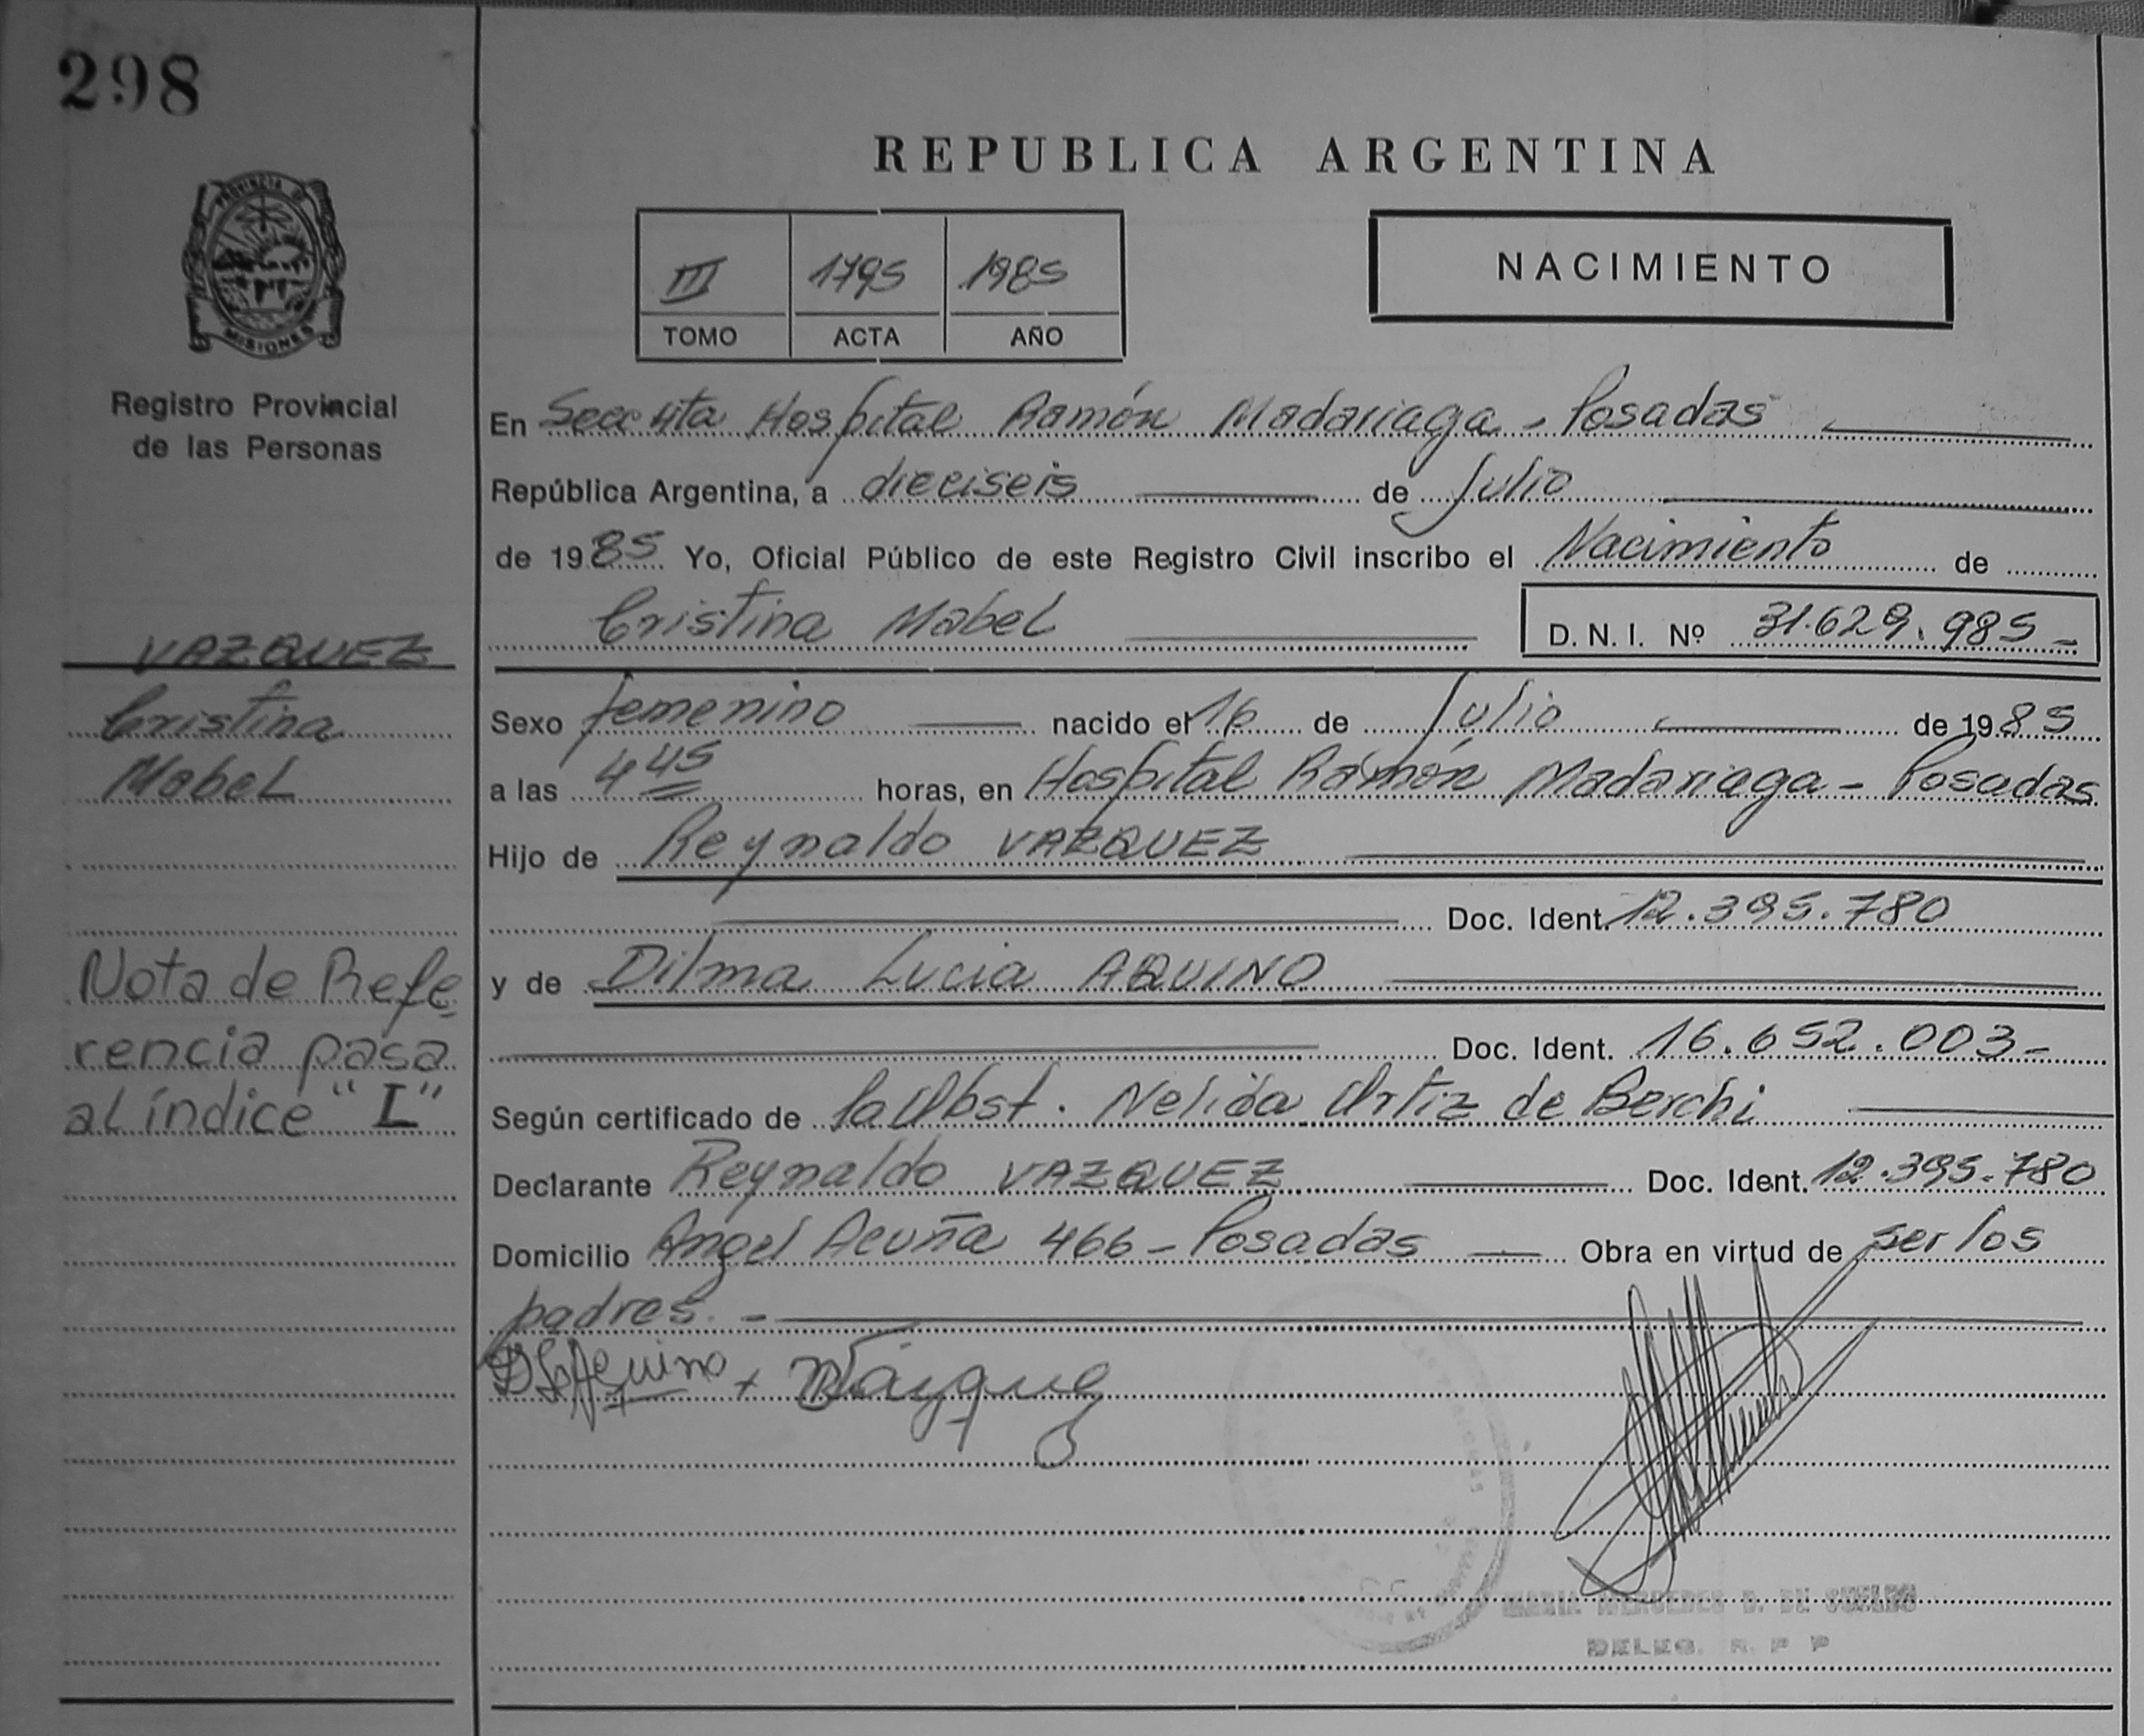 298
PROVINCIA DE
MISIONES
Registro Provincial
de las Personas
VAZQUEZ
Cristina
Mabel
Nota de Refe
rencia pasa
al índice "I"
REPUBLICA ARGENTINA
III 1795 1985
TOMO ACTA AÑO
NACIMIENTO
En Secc 4ta Hospital Ramón Madariaga - Posadas
República Argentina, a dieciseis de Julio
de 1985 Yo, Oficial Público de este Registro Civil inscribo el Nacimiento de
Cristina Mabel D. N. I. Nº 31.629.985-
Sexo femenino nacido el 16 de Julio de 1985
a las 4 45 horas, en Hospital Ramón Madariaga - Posadas
Hijo de Reynaldo VAZQUEZ
Doc. Ident. 12.395.780
y de Dilma Lucia AQUINO
Doc. Ident. 16.652.003-
Según certificado de la Obst. Nelida Ortiz de Berchi
Declarante Reynaldo VAZQUEZ Doc. Ident. 12.395.780
Domicilio Angel Acuña 466 - Posadas Obra en virtud de ser los
padres. -
MARIA MERCEDES D. DE
DELEG. R. P P